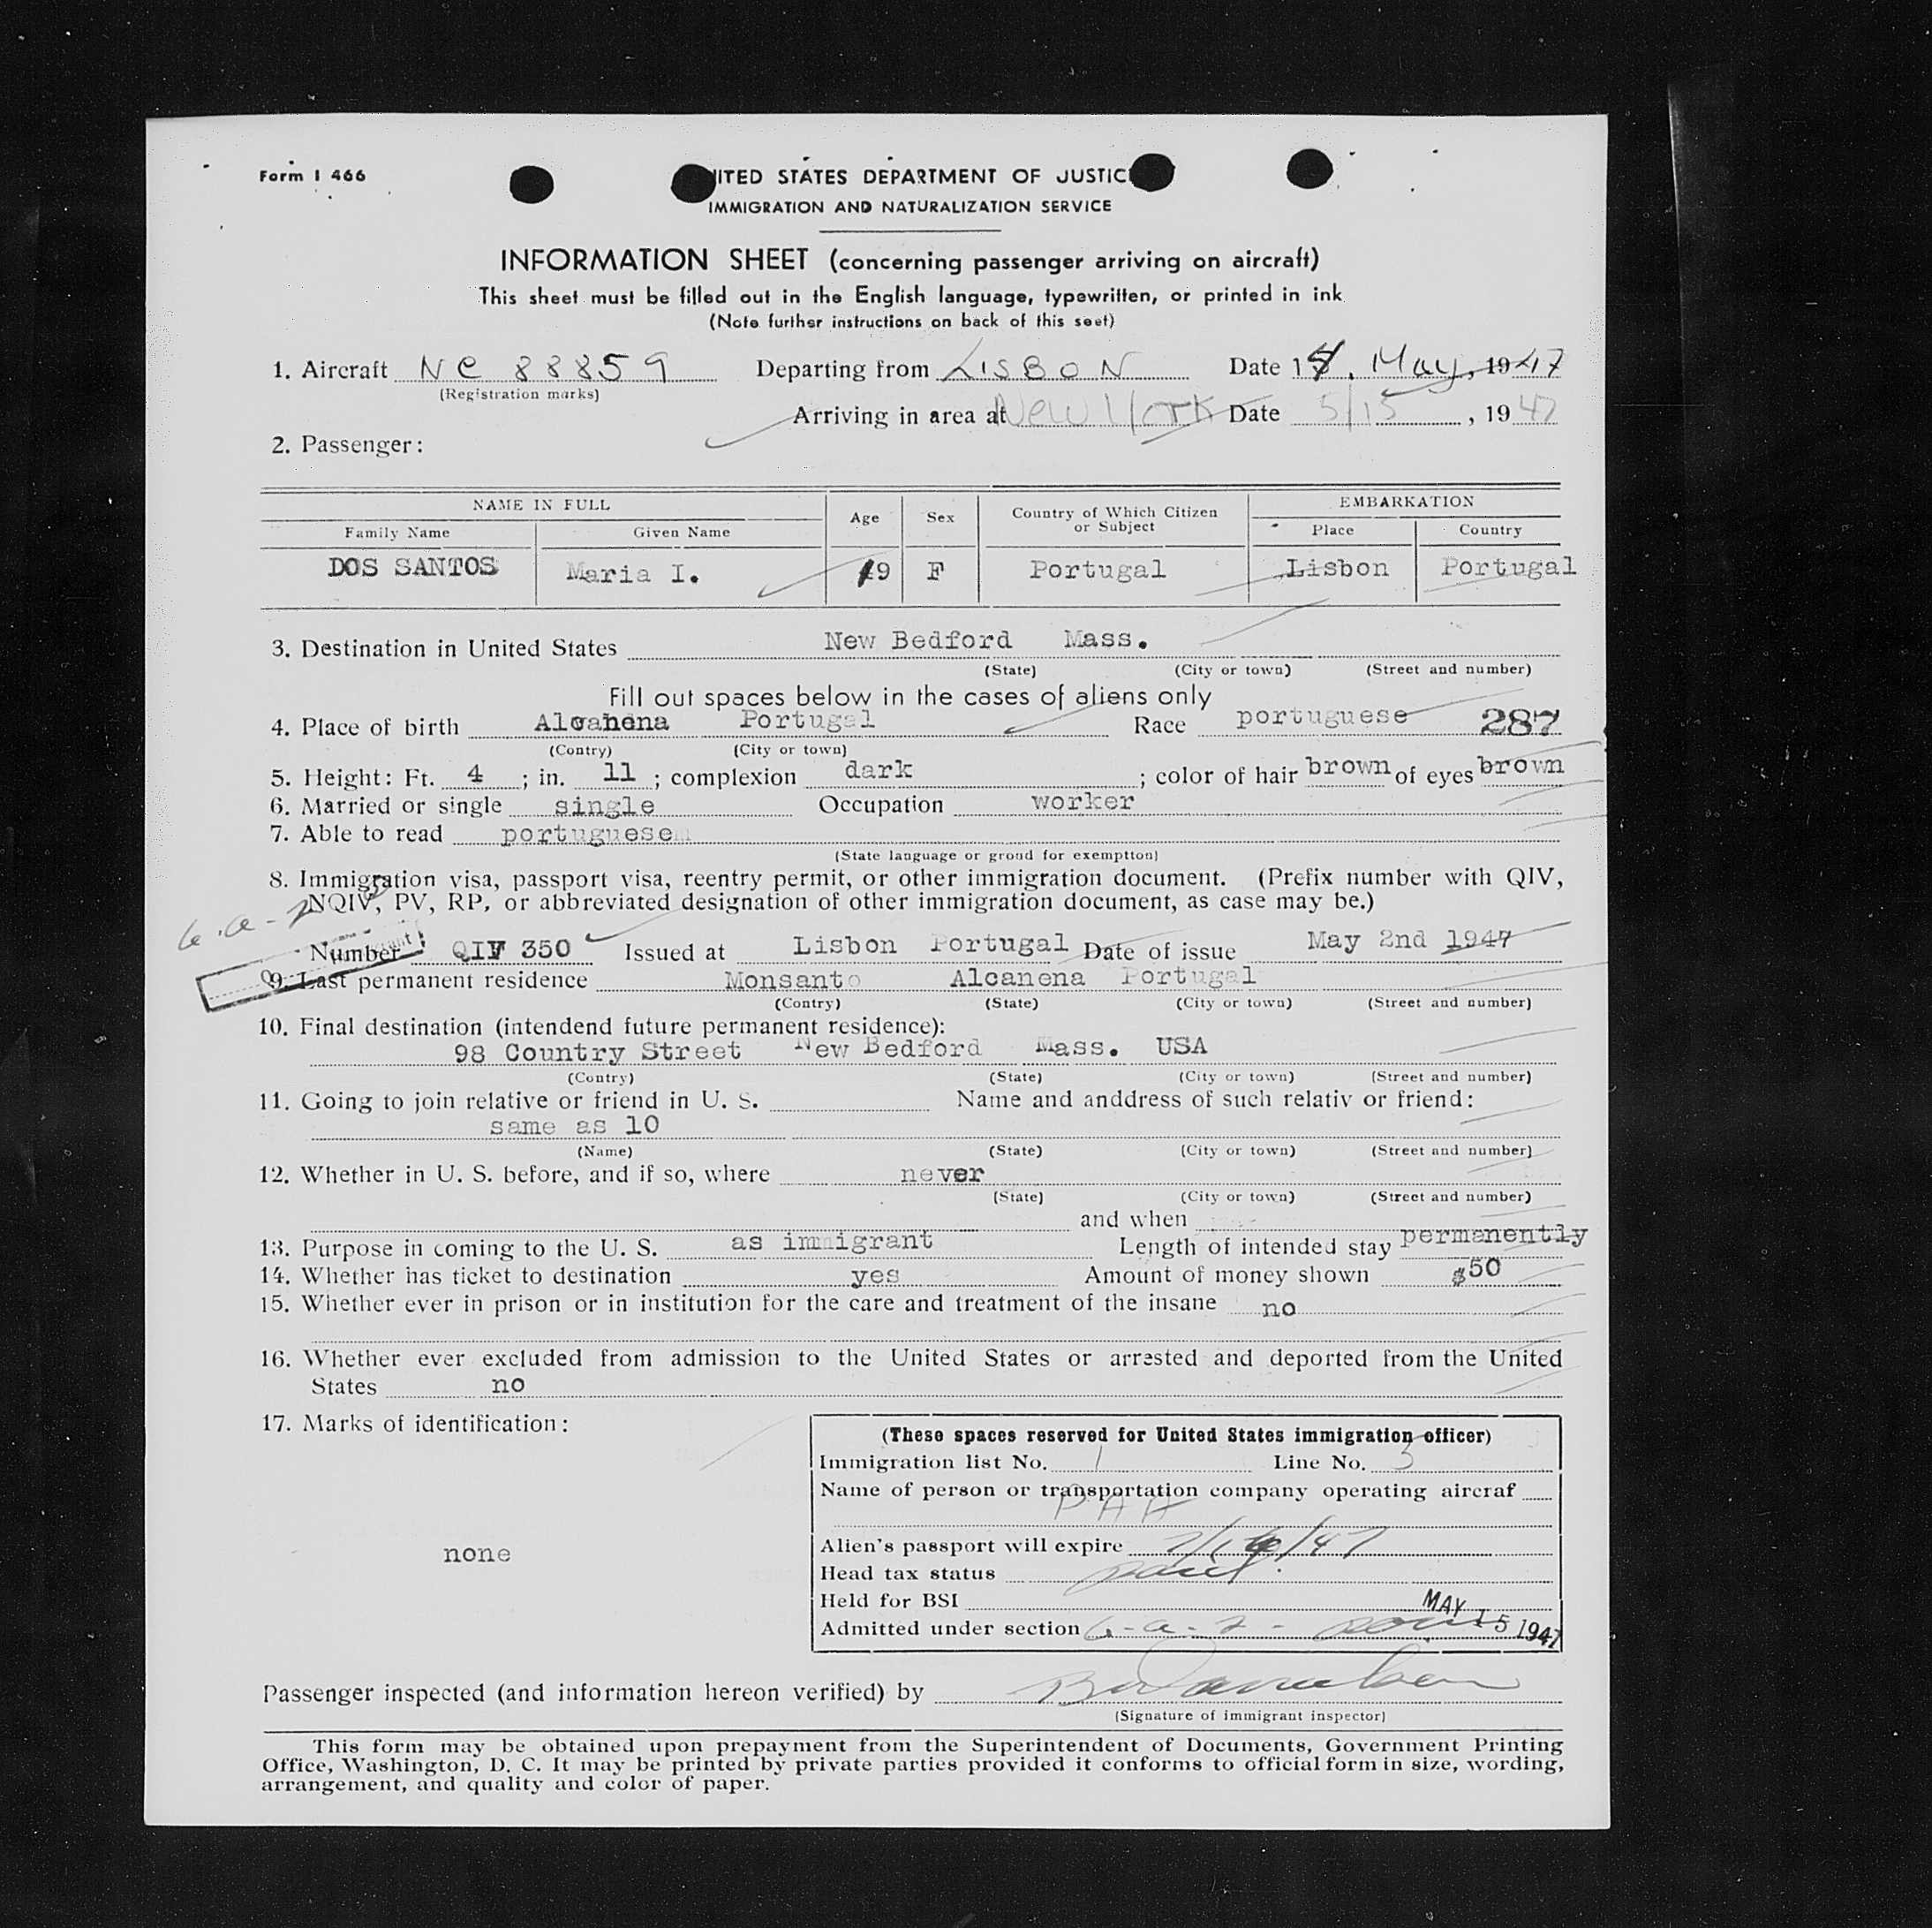 Form I 466
UNITED STATES DEPARTMENT OF JUSTICE
IMMIGRATION AND NATURALIZATION SERVICE
INFORMATION SHEET (concerning passenger arriving on aircraft)
This sheet must be filled out in the English language, typewritten, or printed in ink
(Note further instructions on back of this seet)
1. Aircraft NC 88859 Departing from LISBON Date May, 1947
(Registration marks)
Arriving in area at New York Date 5/15, 1947
2. Passenger:
NAME IN FULL Age Sex Country of Which Citizen or Subject EMBARKATION
Family Name Given Name Place Country
DOS SANTOS Maria I. 19 F Portugal Lisbon Portugal
3. Destination in United States New Bedford Mass.
(State) (City or town) (Street and number)
Fill out spaces below in the cases of aliens only
4. Place of birth Alcanena Portugal Race portuguese 287
(Contry) (City or town)
5. Height: Ft. 4 ; in. 11 ; complexion dark ; color of hair brown of eyes brown
6. Married or single single Occupation worker
7. Able to read portuguese
(State language or groud for exemptton)
8. Immigration visa, passport visa, reentry permit, or other immigration document. (Prefix number with QIV,
NQIV, PV, RP, or abbreviated designation of other immigration document, as case may be.)
Number QIV 350 Issued at Lisbon Portugal Date of issue May 2nd 1947
9. Last permanent residence Monsanto Alcanena Portugal
(Contry) (State) (City or town) (Street and number)
10. Final destination (intendend future permanent residence):
98 Country Street New Bedford Mass. USA
(Contry) (State) (City or town) (Street and number)
11. Going to join relative or friend in U. S. Name and anddress of such relativ or friend:
same as 10
(Name) (State) (City or town) (Street and number)
12. Whether in U. S. before, and if so, where never
(State) (City or town) (Street and number)
and when
13. Purpose in coming to the U. S. as immigrant Length of intended stay permanently
14. Whether has ticket to destination yes Amount of money shown $50
15. Whether ever in prison or in institution for the care and treatment of the insane no
16. Whether ever excluded from admission to the United States or arrested and deported from the United
States no
17. Marks of identification:
none
(These spaces reserved for United States immigration officer)
Immigration list No. 1 Line No. 3
Name of person or transportation company operating aircraf
PAA
Alien's passport will expire
Head tax status paid
Held for BSI
Admitted under section 6-a-2- MAY 15 1947
Passenger inspected (and information hereon verified) by
(Signature of immigrant inspector)
This form may be obtained upon prepayment from the Superintendent of Documents, Government Printing
Office, Washington, D. C. It may be printed by private parties provided it conforms to official form in size, wording,
arrangement, and quality and color of paper.